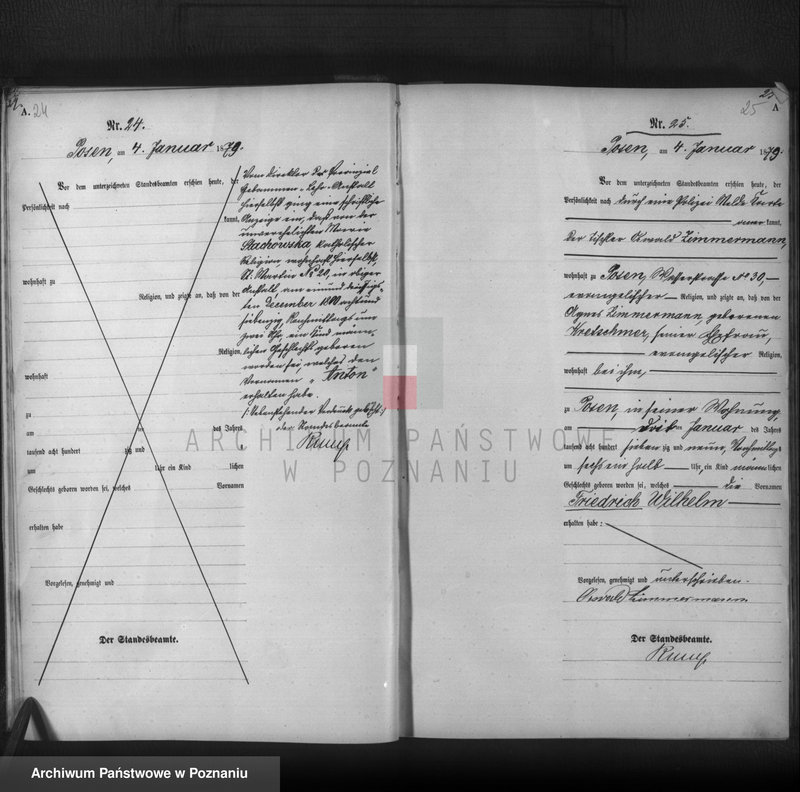 A. 24
Nr. 24.
Posen, am 4. Januar 1879.
Vor dem unterzeichneten Standesbeamten erschien heute, der
Persönlichkeit nach
kannt,
wohnhaft zu
Religion, und zeigte an, daß von der
Religion,
wohnhaft
zu
am des Jahres
tausend acht hundert zig und
um Uhr ein Kind lichen
Geschlechts geboren worden sei, welches Vornamen
erhalten habe
Vorgelesen, genehmigt und
Der Standesbeamte.
Vom Direktor der Provinzial
Hebammen-Lehr-Anstalt
hierselbst ging eine schriftliche
Anzeige ein, daß von der
unverehelichten Maria
Stachowska, katholischer
Religion, wohnhaft hierselbst,
St. Martin No 20, in obiger
Anstalt am einunddreißigs-
ten December 1800 achtund
siebenzig, Nachmittags um
zwei Uhr, ein Kind männ-
lichen Geschlechts geboren
worden sei, welches den
Vornamen "Anton"
erhalten habe.
der Standesbeamte
25
A
Nr. 25.
Posen, am 4. Januar 1879.
Vor dem unterzeichneten Standesbeamten erschien heute, der
Persönlichkeit nach durch eine Polizei Melde Karte
kannt,
der Tischler Oswald Zimmermann,
wohnhaft zu Posen, Wasserstrasse No 30,
evangelischer Religion, und zeigte an, daß von der
Agnes Zimmermann, geborenen
Kretschmer, seiner Ehefrau,
evangelischer Religion,
wohnhaft bei ihm,
zu Posen, in seiner Wohnung
am Januar des Jahres
tausend acht hundert sieben zig und neun, Vormittags
um sechs ein halb Uhr, ein Kind männlichen
Geschlechts geboren worden sei, welches die Vornamen
Friedrich Wilhelm
erhalten habe:
Vorgelesen, genehmigt und unterschrieben.
Oswald Zimmermann
Der Standesbeamte.
ARCHIWUM PAŃSTWOWE
W POZNANIU
Archiwum Państwowe w Poznaniu